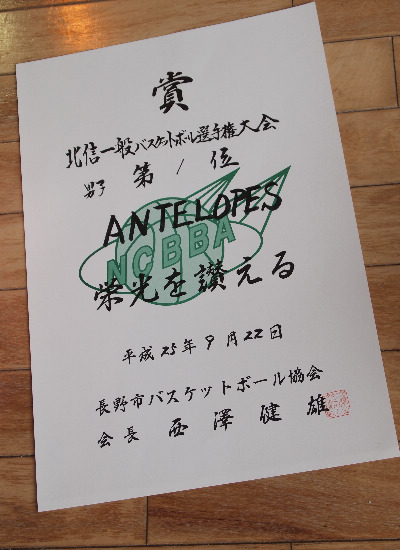 賞
北信一般バスケットボール選手権大会
男子 第1位
ANTELOPES
NCBBA
栄光を讃える
平成25年9月22日
長野市バスケットボール協会
会長 西澤健雄